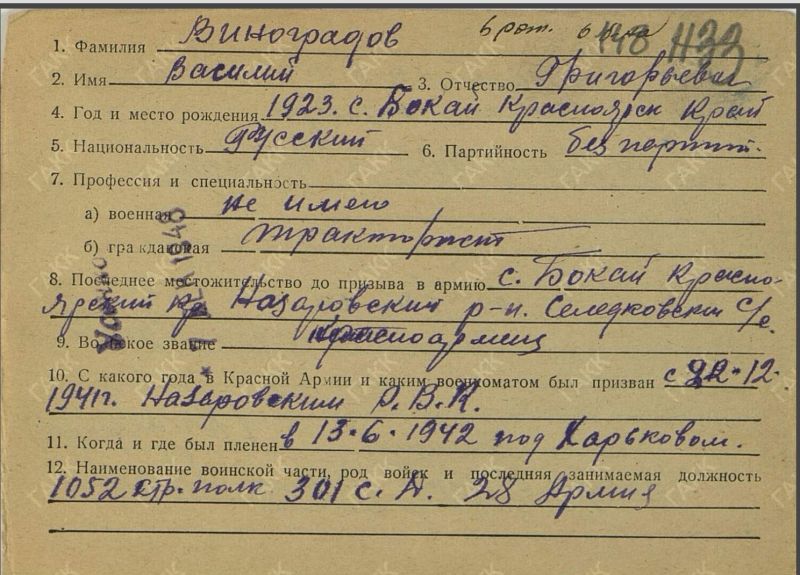 6 рот.
1. Фамилия Виноградов
2. Имя Василий 3. Отчество Григорьевич
4. Год и место рождения 1923. с. Бокай Красноярск Край
5. Национальность Русский 6. Партийность без парт.
7. Профессия и специальность
а) военная не имею
б) гражданская тракторист
8. Последнее местожительство до призыва в армию с. Бокай Красно-
ярский кр Назаровский р-н. Селедковский с/с.
9. Воинское звание красноармеец
10. С какого года в Красной Армии и каким военкоматом был призван с 22-12-
1941г. Назаровским Р.В.К.
11. Когда и где был пленен в 13-6-1942 под Харьковом.
12. Наименование воинской части, род войск и последняя занимаемая должность
1052 стр. полк 301 с. д. 28 Армия